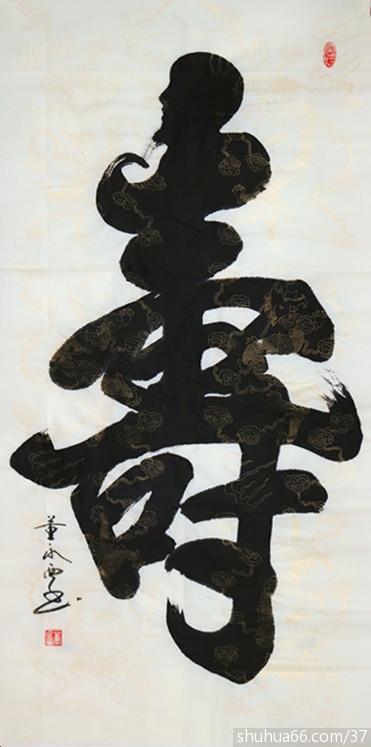 壽
董永西书
shuhua66.com/37